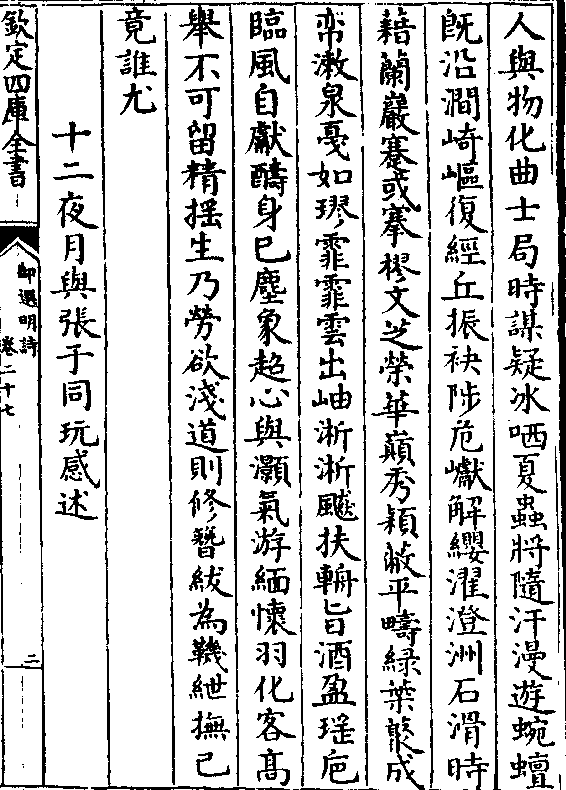 人與物化曲士局時謀疑冰哂夏蟲將隨汗漫遊蜿蟺
既沿澗崎嶇復經丘振袂陟危巘解纓濯澄洲石滑時
藉蘭巖蹇或搴樛文芝榮華巔秀穎蔽平疇綠葉聚成
帟漱泉戞如璆霏霏雲出岫淅淅飈扶輈旨酒盈瑤巵
臨風自獻醻身已塵象超心與灝氣游緬懷羽化客髙
舉不可留精揺生乃勞欲淺道則修簪紱為鞿紲撫已
竟誰尤
十二夜月與張子同玩感述
欽定四庫全書
御選明詩
卷二十七
二